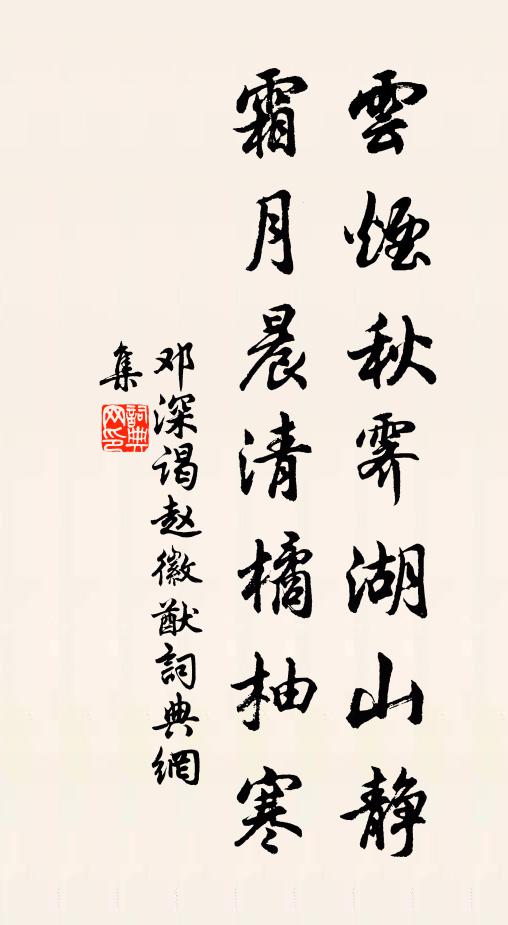 雲煙秋霽湖山静
霜月晨清橘柚寒
邓深谒赵徽猷詞典網
集
詞典
网印